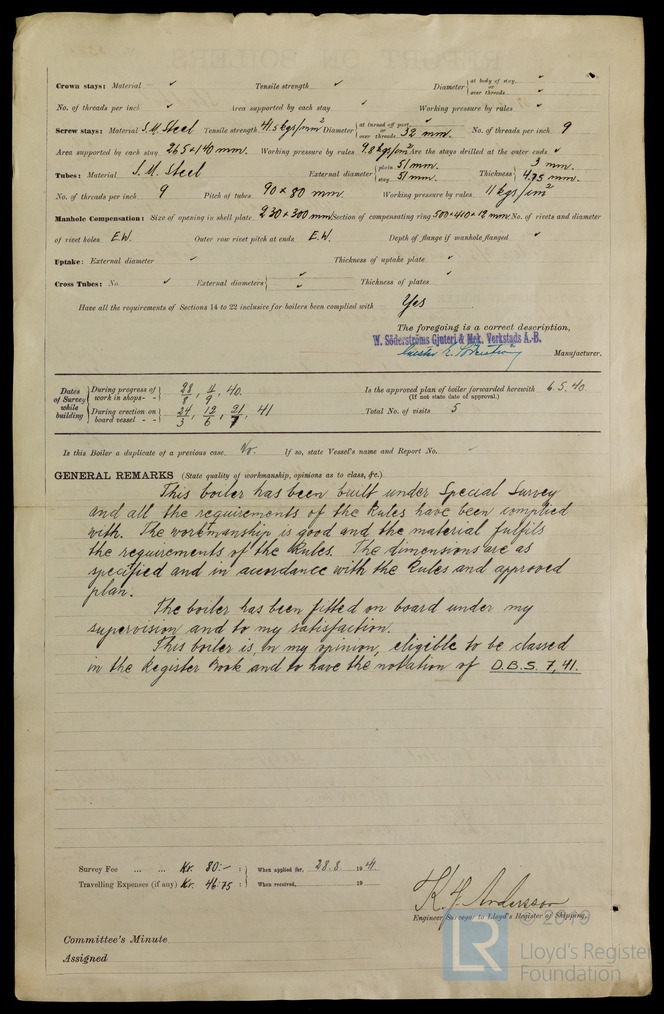 Crown stays: Material ✓ Tensile strength ✓ Diameter { at body of stay, ✓ or over threads ✓
No. of threads per inch ✓ Area supported by each stay ✓ Working pressure by rules ✓
Screw stays: Material S.M. Steel Tensile strength 41.5 kgs/mm² Diameter { at turned off part, ✓ or over threads 32 mm. No. of threads per inch 9
Area supported by each stay 265×140 mm. Working pressure by rules 9.8 kgs/cm² Are the stays drilled at the outer ends ✓
Tubes: Material S.M. Steel External diameter { plain 51 mm. stay 51 mm. Thickness { 3 mm. 4.75 mm.
No. of threads per inch 9 Pitch of tubes 90 × 80 mm. Working pressure by rules 11 kgs/cm²
Manhole Compensation: Size of opening in shell plate 230×300 mm Section of compensating ring 500×410×12 mm No. of rivets and diameter
of rivet holes E.W. Outer row rivet pitch at ends E.W. Depth of flange if manhole flanged ✓
Uptake: External diameter ✓ Thickness of uptake plate ✓
Cross Tubes: No. ✓ External diameters { ✓ ✓ Thickness of plates ✓
Have all the requirements of Sections 14 to 22 inclusive for boilers been complied with Yes
The foregoing is a correct description,
W. Söderströms Gjuteri & Mek. Verkstads A.-B.
Manufacturer.
Dates of Survey while building { During progress of work in shops - - } 28/8, 4/9, 40. Is the approved plan of boiler forwarded herewith 6.5.40.
(If not state date of approval.)
{ During erection on board vessel - - } 24/3, 12/6, 21/7, 41 Total No. of visits 5
Is this Boiler a duplicate of a previous case No. If so, state Vessel's name and Report No. -
GENERAL REMARKS (State quality of workmanship, opinions as to class, &c.)
This boiler has been built under Special Survey
and all the requirements of the Rules have been complied
with. The workmanship is good and the material fulfils
the requirements of the Rules. The dimensions are as
specified and in accordance with the Rules and approved
plan.
The boiler has been fitted on board under my
supervision and to my satisfaction.
This boiler is, in my opinion, eligible to be classed
in the Register Book and to have the notation of D.B.S. 7,41.
Survey Fee ... ... Kr. 80:- : } When applied for, 28.8. 1941
Travelling Expenses (if any) Kr. 46:75 : } When received, 19
K. G. Andersson
Engineer Surveyor to Lloyd's Register of Shipping.
Committee's Minute
Assigned
© 2019
LR Lloyd's Register
Foundation